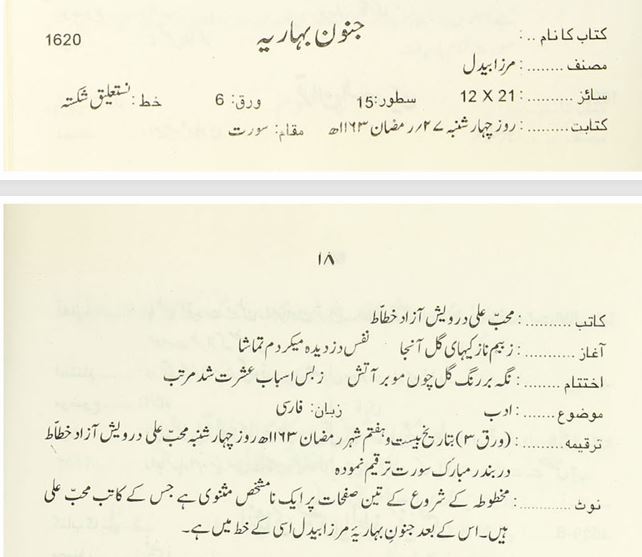 کتاب کا نام ..: جنون بہاریہ 1620
مصنف ........: مرزا بیدل
سائز .........: 21 X 12 سطور: 15 ورق: 6 خط: نستعلیق شکستہ
کتابت.........: روز چہار شنبہ ۲۷؍رمضان ۱۱۶۳ھ مقام: سورت
۱۸
کاتب ..........: محبّ علی درویش آزاد خطّاط
آغاز ..........: ز بیم نازکیہای گل آنجا نفس دزدیدہ میکردم تماشا
اختتام ........: نگہ بر رنگ گل چوں مو بر آتش ز بس اسباب عشرت شد مرتب
موضوع .......: ادب زبان: فارسی
ترقیمہ.........: (ورق ۳) بتاریخ بیست و ہفتم شہر رمضان ۱۱۶۳ھ روز چہار شنبہ محبّ علی درویش آزاد خطّاط
در بندر مبارک سورت ترقیم نمودہ
نوٹ ...........: مخطوطہ کے شروع کے تین صفحات پر ایک نامشخص مثنوی ہے جس کے کاتب محبّ علی
ہیں۔ اس کے بعد جنونِ بہاریۂ مرزا بیدل اسی کے خط میں ہے۔